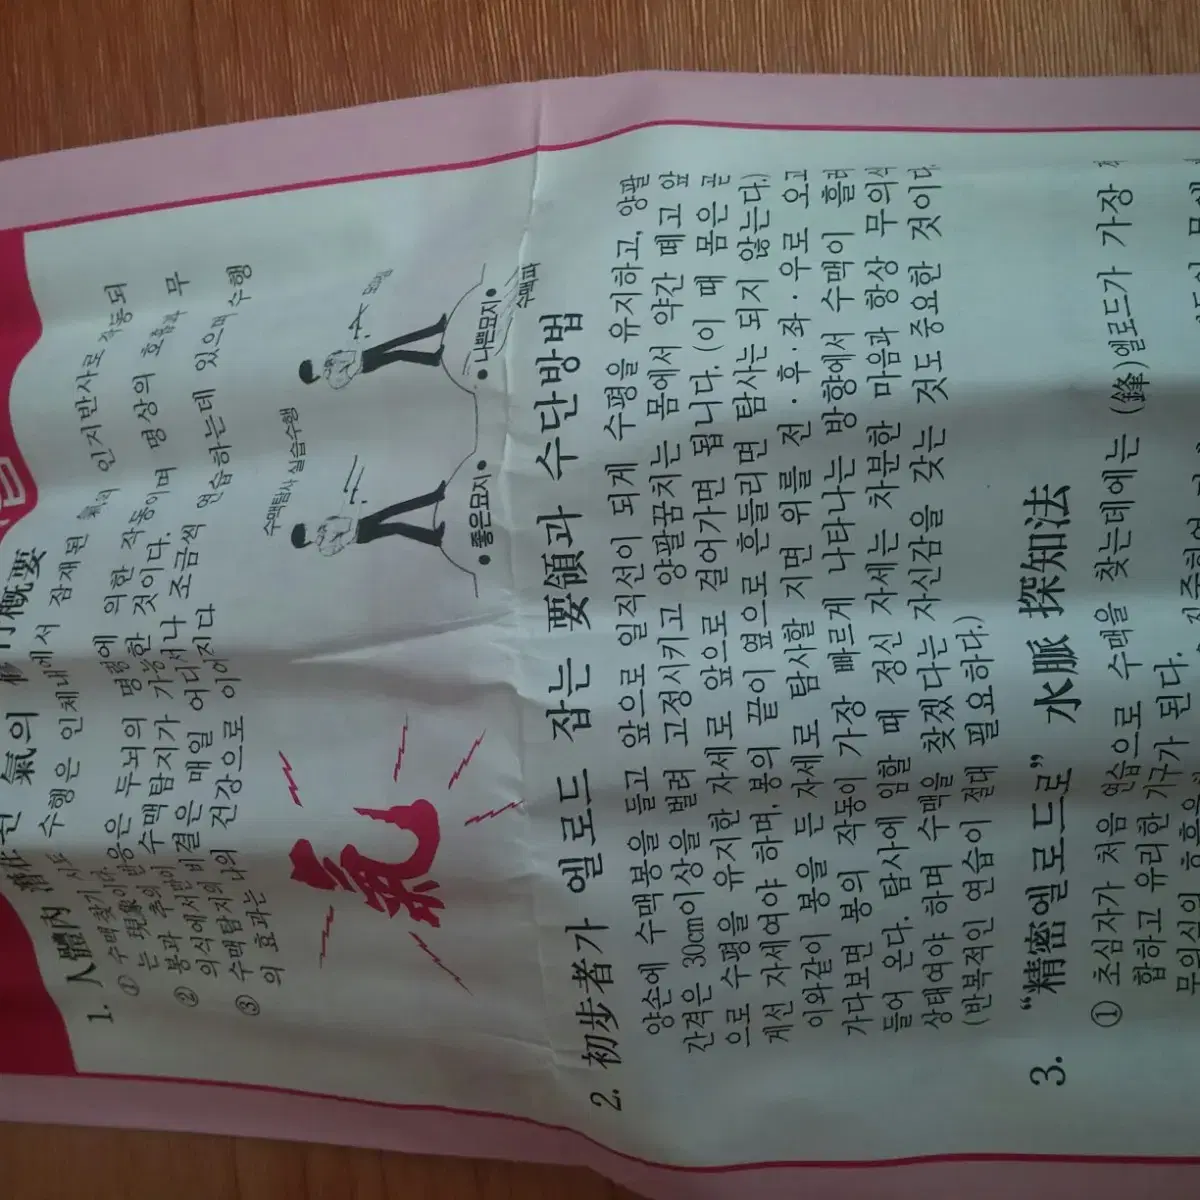 1. 人體內 潛在된 氣의 槪要
① 수맥찾기 수행은 인체내에서 잠재된 인지반사로 작동되
는 現象이다. 반응은 두뇌의 명령에 의한 작동이며 명상의 효과 무
② 봉과 추의 수맥탐지가 가능한 것이다.
의식에서만이
③ 수맥탐지의 비결은 매일 어디서나 조금씩 연습하는데 있으며 수행
의 효과는 나의 건강으로 이어진다
수맥탐사 실습수행
• 좋은묘지 •
• 나쁜묘지 •
수맥파
氣
2. 初步者가 엘로드 잡는 要領과 수단방법
양손에 수맥봉을 들고 앞으로 일직선이 되게 수평을 유지하고, 양팔
간격은 30cm이상을 벌려 고정시키고 양팔꿈치는 몸에서 약간 떼고 앞
으로 수평을 유지한 자세로 앞으로 걸어가면 됩니다. (이 때 몸은 곧
게선 자세여야 하며, 봉의 끝이 옆으로 흔들리면 탐사는 되지 않는다.)
이와같이 봉을 든 자세로 탐사할 지면 위를 전·후·좌·우로 오고
가다보면 봉의 작동이 가장 빠르게 나타나는 방향에서 수맥이 흘러
들어 온다. 탐사에 임할 때 정신 자세는 차분한 마음과 항상 무의식
상태여야 하며 수맥을 찾겠다는 자신감을 갖는 것도 중요한 것이다.
(반복적인 연습이 절대 필요하다.)
3. “精密엘로드로” 水脈 探知法
① 초심자가 처음 연습으로 수맥을 찾는데에는 (鋒)엘로드가 가장
합하고 유리한 기구가 된다.
무의식의